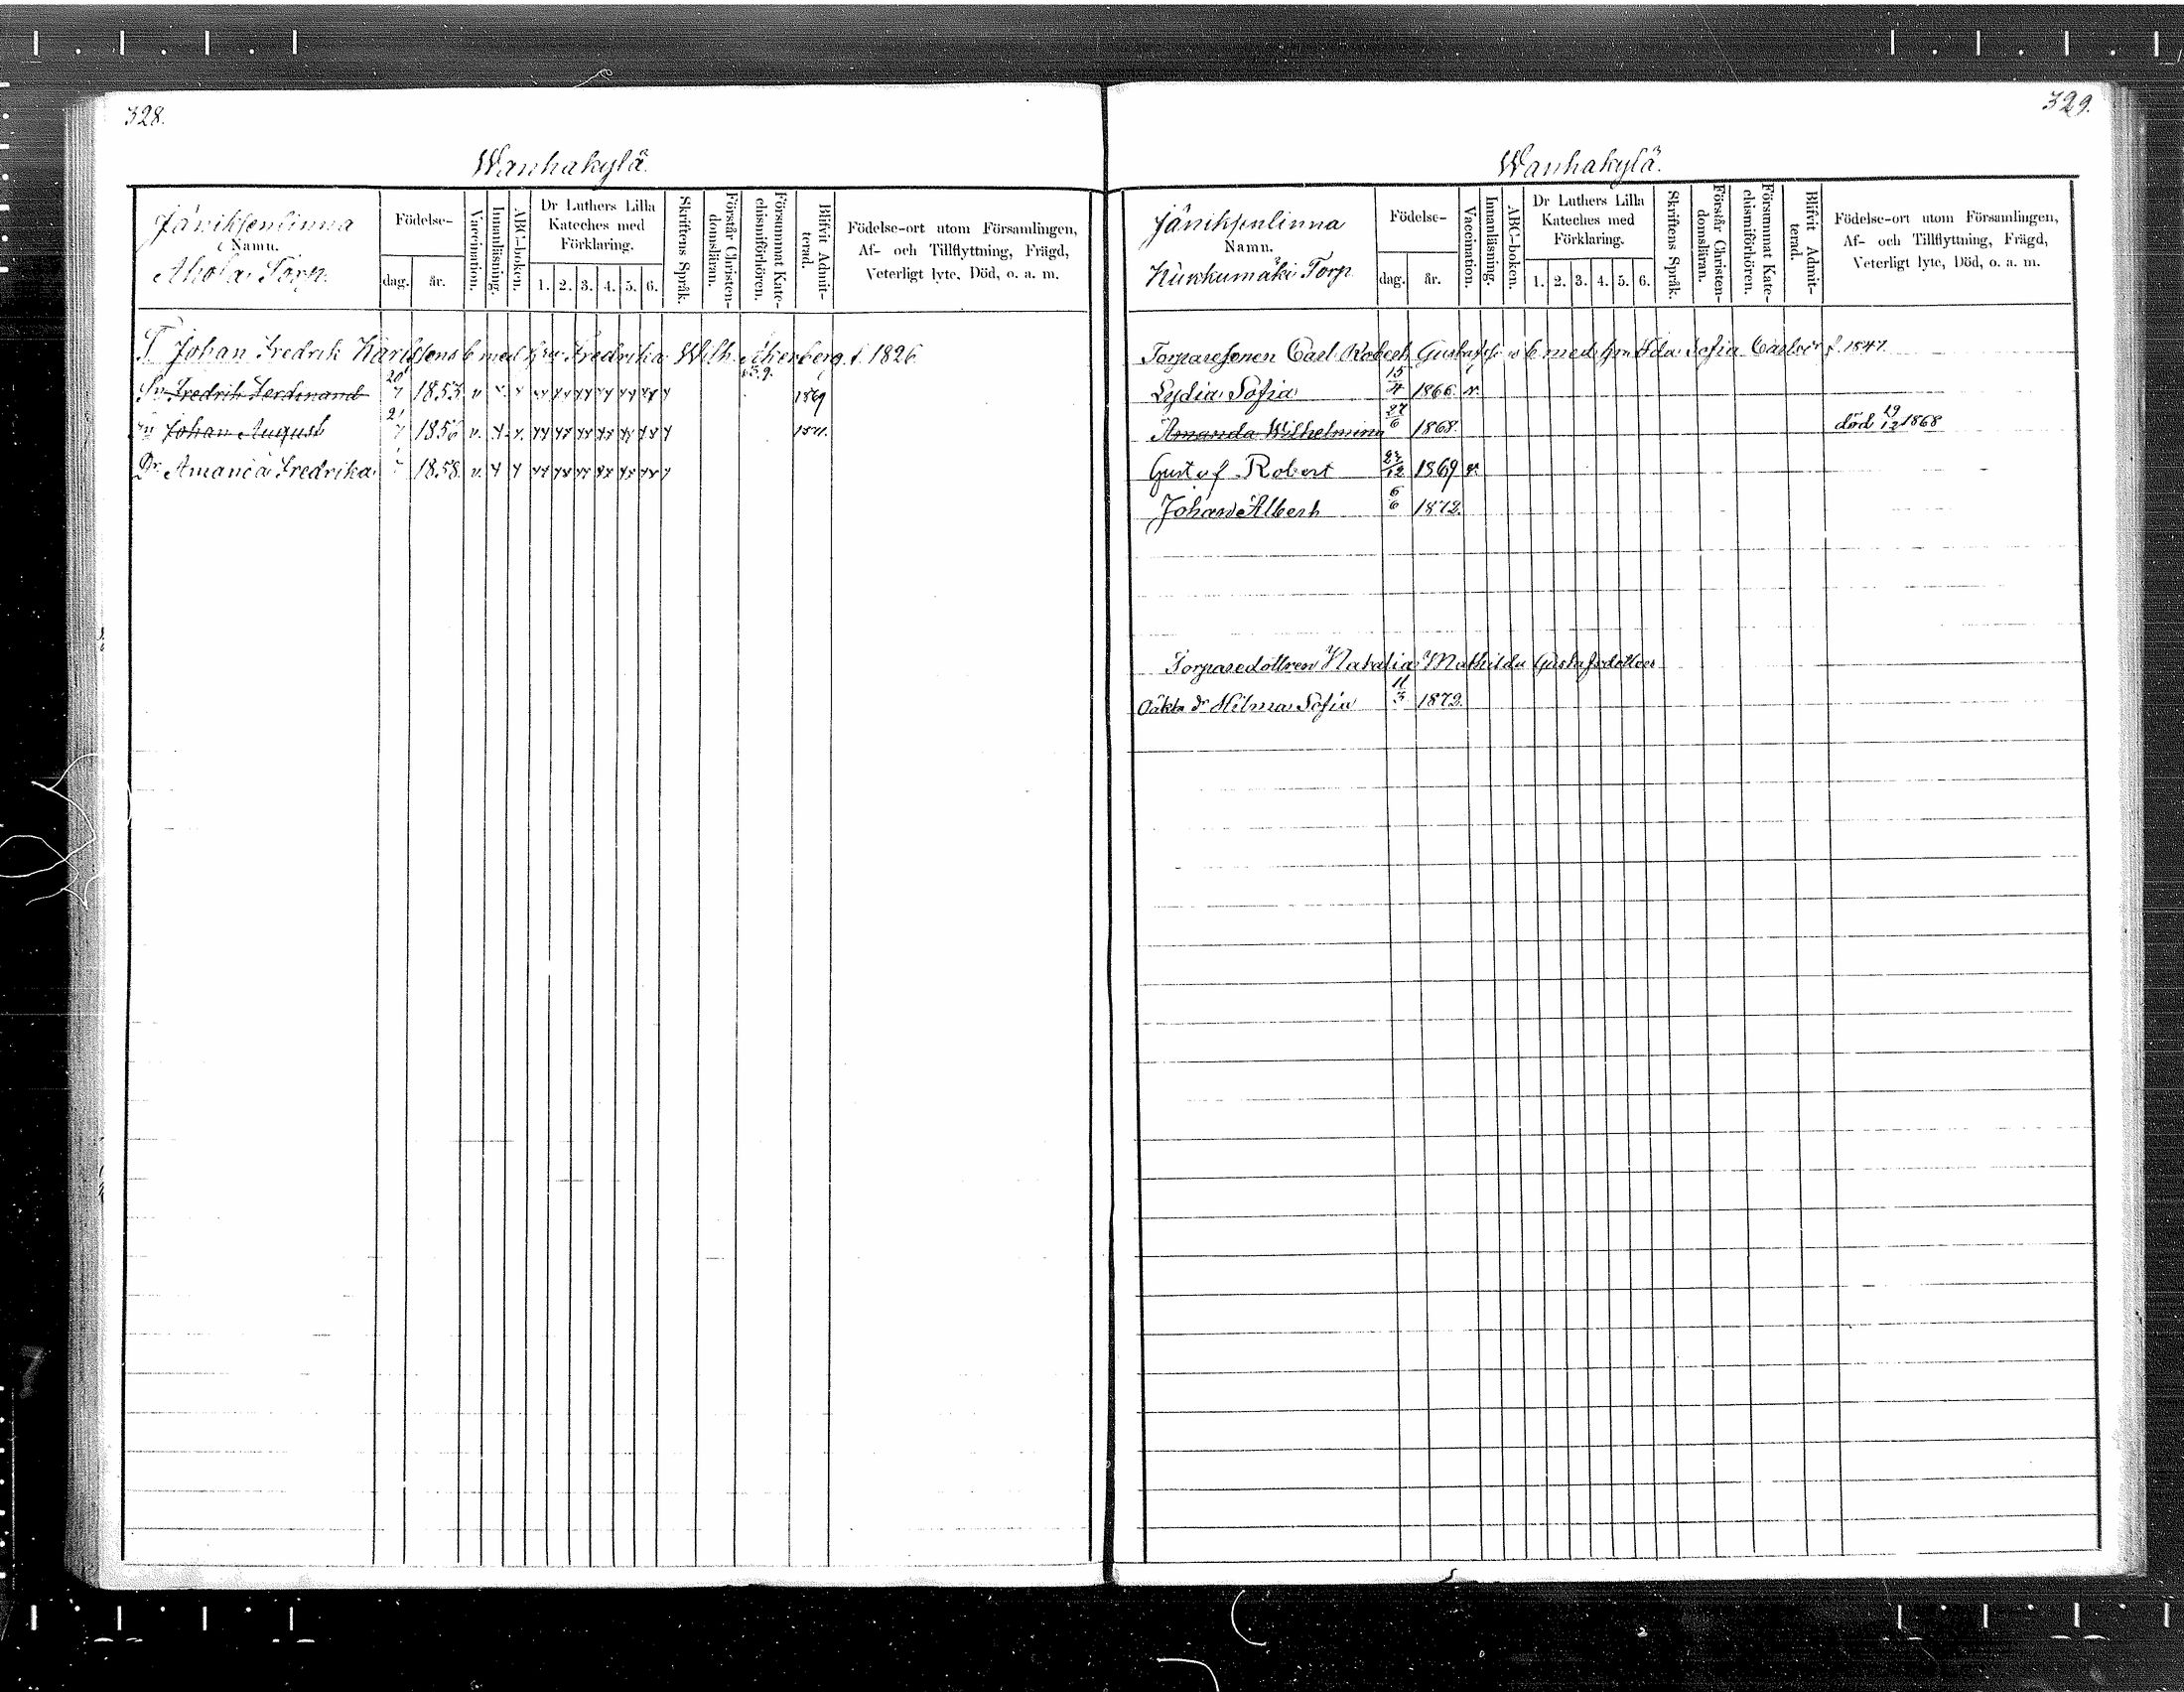 328.
Wanhakylä.
Jäniksenlinna
Namn.
Ahola Torp.
Födelse-
dag. år.
Vaccination.
Innanläsning.
ABC-boken.
Dr Luthers Lilla
Kateches med
Förklaring.
1. 2. 3. 4. 5. 6.
Skriftens Språk.
Förstår Christen-
domsläran.
Försummat Kate-
chismiförhören.
Blifvit Admit-
terad.
Födelse-ort utom Församlingen,
Af- och Tillflyttning, Frägd,
Veterligt lyte, Död, o. a. m.
T Johan Fredrik Karlssons b med hru Fredrika Wilh. f. 1826
Sn Fredrik Ferdinand 20/7 1853 v 1869
Sn Johan August 1856 v.
Dr. Amanda Fredrika 1858. v.
329.
Wanhakylä.
Jäniksenlinna
Namn.
Kukkumäki Torp
Födelse-
dag. år.
Vaccination.
Innanläsning.
ABC-boken.
Dr Luthers Lilla
Kateches med
Förklaring.
1. 2. 3. 4. 5. 6.
Skriftens Språk.
Förstår Christen-
domsläran.
Försummat Kate-
chismiförhören.
Blifvit Admit-
terad.
Födelse-ort utom Församlingen,
Af- och Tillflyttning, Frägd,
Veterligt lyte, Död, o. a. m.
Torparesonen Carl Robert b med Ida Sofia f. 1847
Lydia Sofia 15/4 1866. v.
Amanda Wilhelmina 27/6 1868. död 19/12 1868
Gustaf Robert 1869 v.
Johan Albert 6/6 1872.
Torparedottren Natalia Mathilda Gustafsdotters
Oäkta dr Hilma Sofia 11/3 1872.